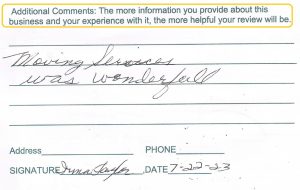 Additional Comments: The more information you provide about this
business and your experience with it, the more helpful your review will be.
Moving Services
was wonderfull
Address PHONE
SIGNATURE DATE 7-22-23